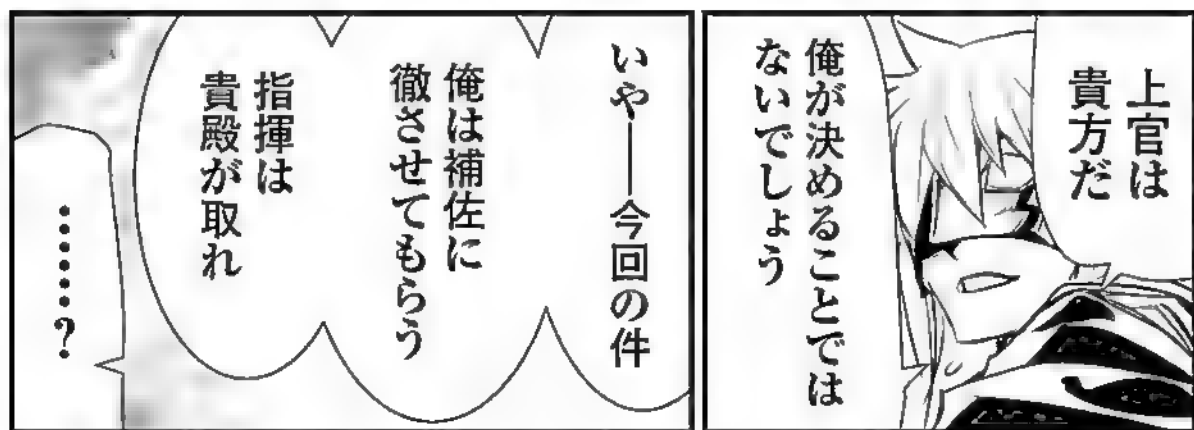 上官は
貴方だ
俺が決めることでは
ないでしょう
いや――今回の件
俺は補佐に
徹させてもらう
指揮は
貴殿が取れ
……?